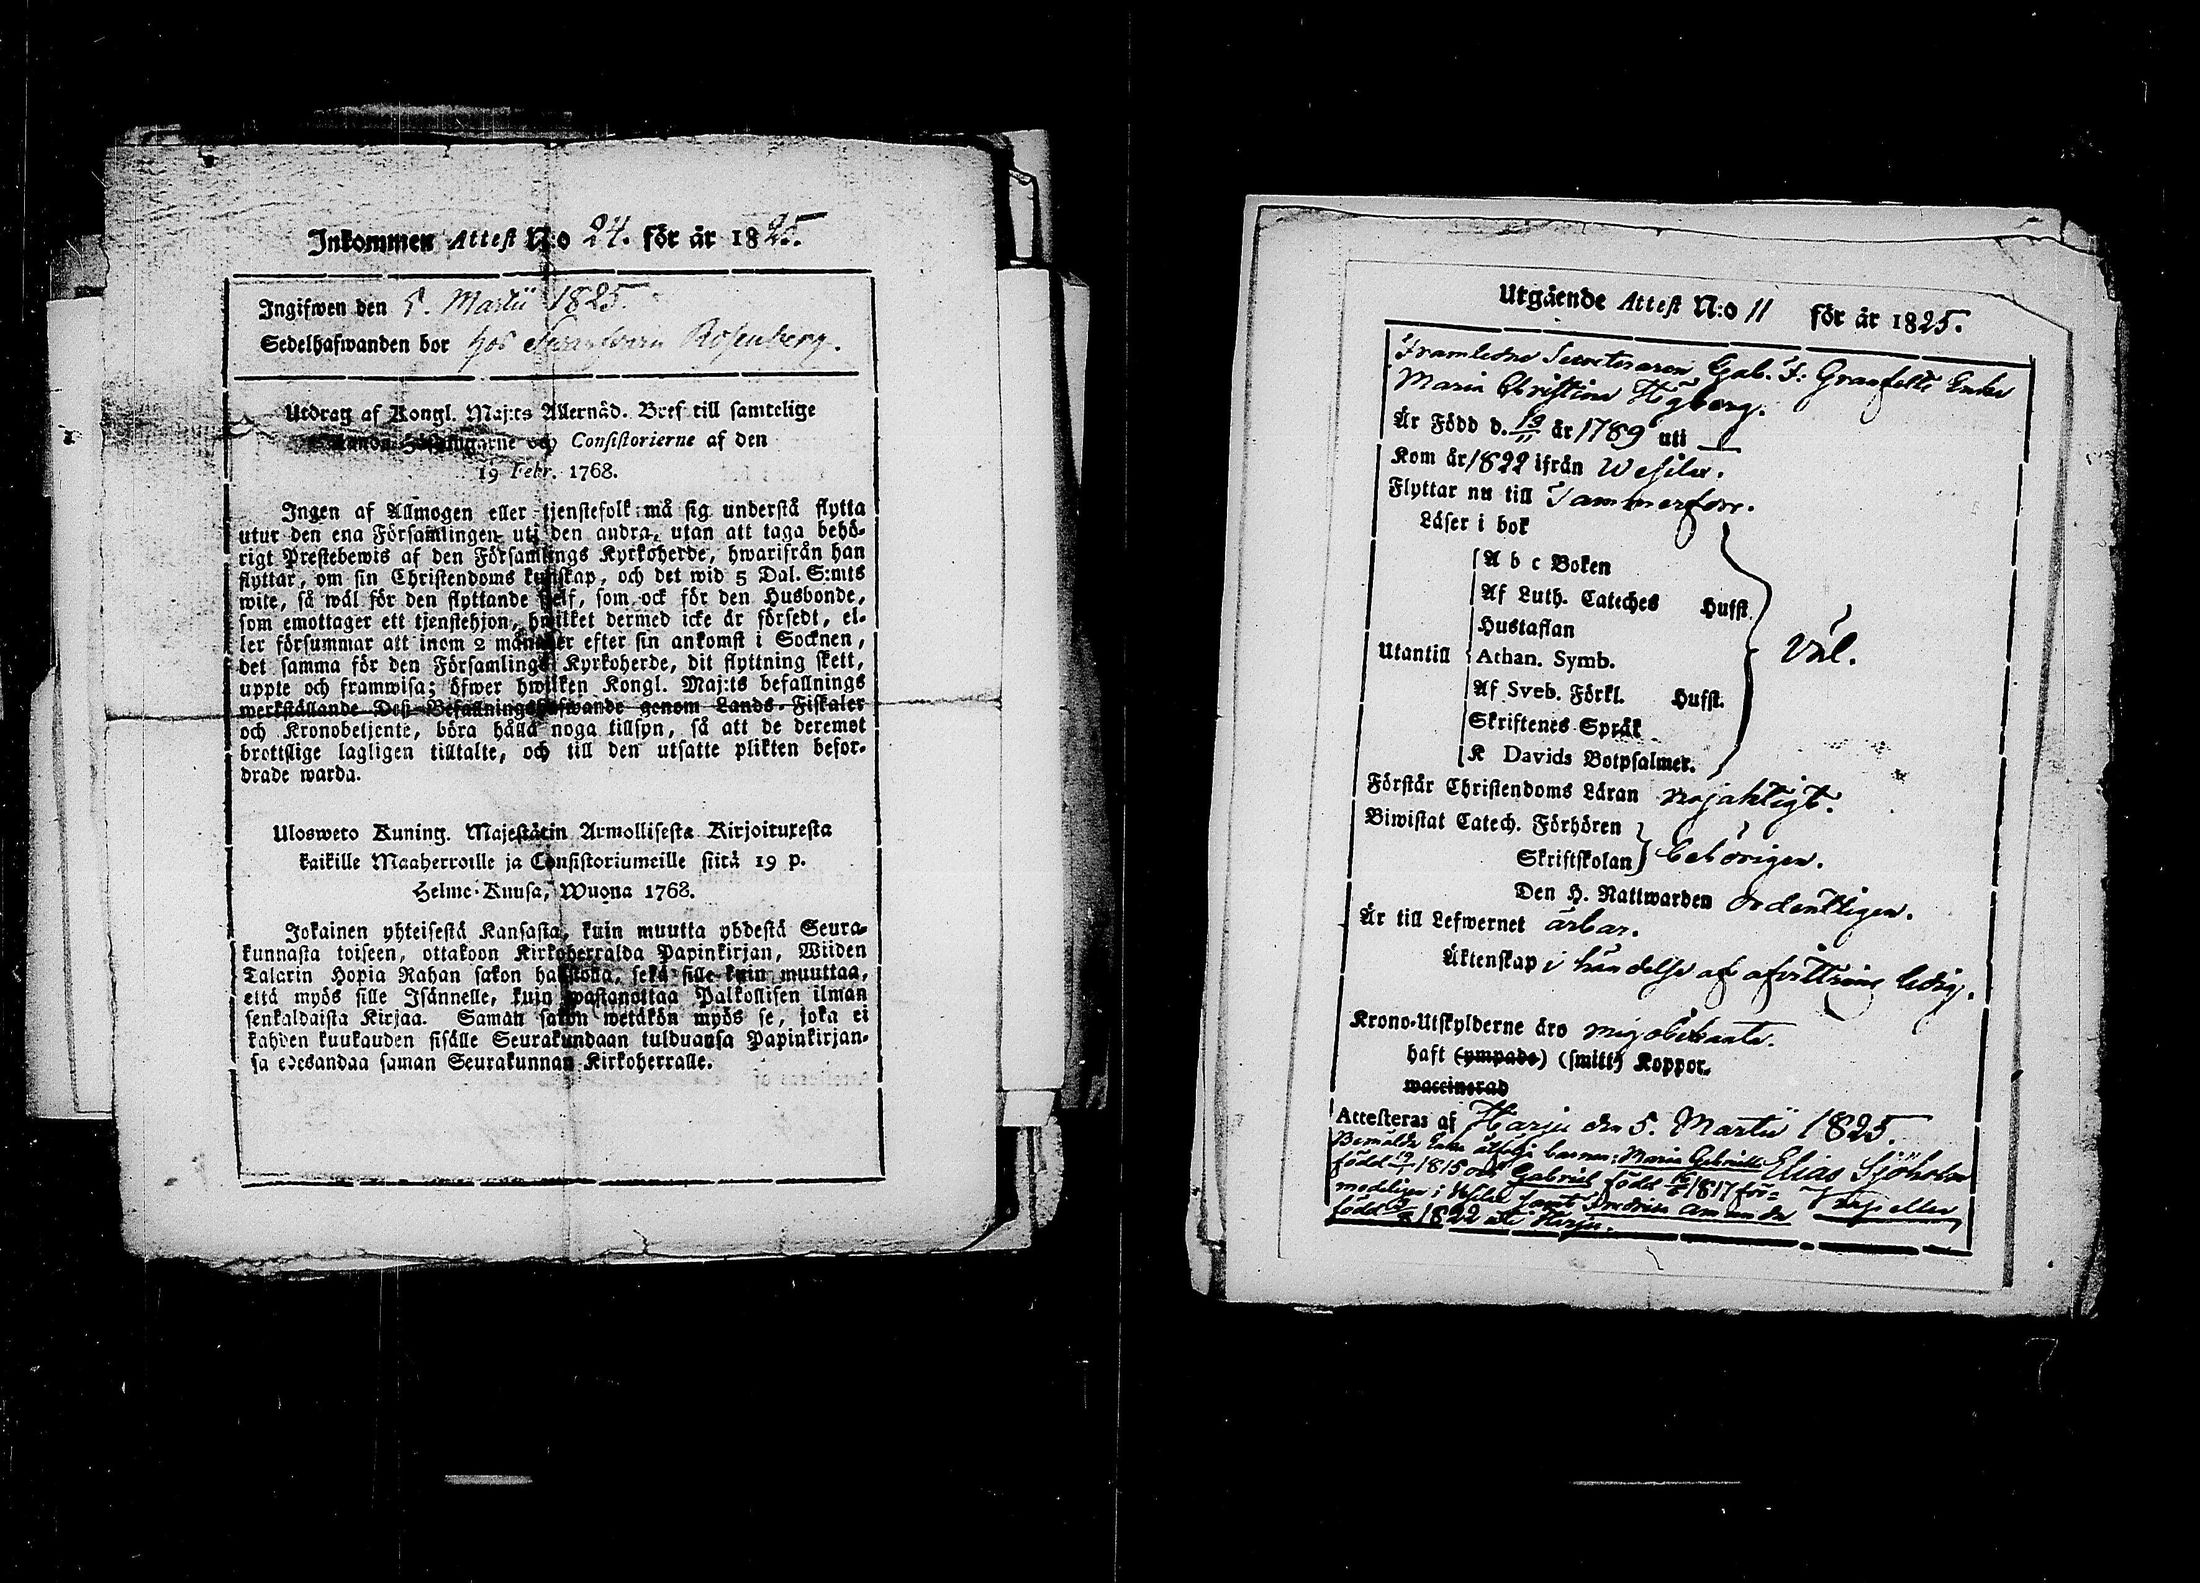 Inkommen Attest N:o 24. för år 1825.
Ingifwen den 5. Martii 1825.
Sedelhafwanden bor hos Rosenberg.
Utdrag af Kongl. Maj:ts Allernåd. Bref till samtelige
och Consistorierne af den
19 Febr. 1768.
Ingen af Allmogen eller tjenstefolk må sig understå flytta
utur den ena Församlingen uti den andra, utan att taga behö-
rigt Prestebewis af den Församlings Kyrkoherde, hwarifrån han
flyttar, om sin Christendoms kunskap, och det wid 5 Dal. S:mts
wite, så wäl för den flyttande sjelf, som ock för den Husbonde,
som emottager ett tjenstehjon, hwilket dermed icke är försedt, el-
ler försummar att inom 2 månader efter sin ankomst i Socknen,
det samma för den Församlings Kyrkoherde, dit flyttning skett,
uppte och framwisa; öfwer hwilken Kongl. Maj:ts befallnings
werkställande Desz Befallningshafwande genom Lands-Fiskaler
och Kronobetjente, böra hålla noga tillsyn, så att de deremot
brottslige lagligen tilltalte, och till den utsatte plikten befor-
drade warda.
Ulosweto Kuning. Majestätin Armollisesta Kirjoituxesta
kaikille Maaherroille ja Consistoriumeille siitä 19 p.
Helme-Kuusa, Wuona 1768.
Jokainen yhteisestä Kansasta, kuin muutta yhdestä Seura-
kunnasta toiseen, ottakoon Kirkoherralda Papinkirjan, Wiiden
Talarin Hopia Rahan sakon haastolla, sekä sille kuin muuttaa,
että myös sille Isännelle, kuin wastanottaa Palkollisen ilman
senkaldaista Kirjaa. Saman sakon wetäkön myös se, joka ei
kahden kuukauden sisälle Seurakundaan tulduansa Papinkirjan-
sa edesandaa saman Seurakunnan Kirkoherralle.
Utgående Attest N:o 11 för år 1825.
Framledne Secreteraren Gab. F: Granfelts Enka
Maria Christina Högberg.
Är Född d. 19/11 år 1789 uti —
Kom år 1822 ifrån Wesilax.
Flyttar nu till Tammerfors.
Läser i bok
A b c Boken
Af Luth. Cateches Hufst.
Hustaflan
Utantill Athan. Symb.
Af Sveb. Förkl. Hufst.
Skriftenes Språk
K Davids Botpsalmer.
väl.
Förstår Christendoms Läran nöjaktigt.
Biwistat Catech. Förhören
Skriftskolan behörigen.
Den H. Nattwarden ordentligen.
Är till Lefwernet ärbar.
Äktenskap i händelse af afvittring ledig.
Krono-Utskylderne äro mig obekanta.
haft (ympade) (smitt) Koppor.
waccinerad
Attesteras af Harju den 5. Martii 1825.
Bemälde Enka åtfölja barnen: Maria Gabriella Elias Sjöholm
född 1815 och Gabriel född 1817 för-
modeligen i Wesilax samt Fredrica Amanda
född 1822 uti Harju.